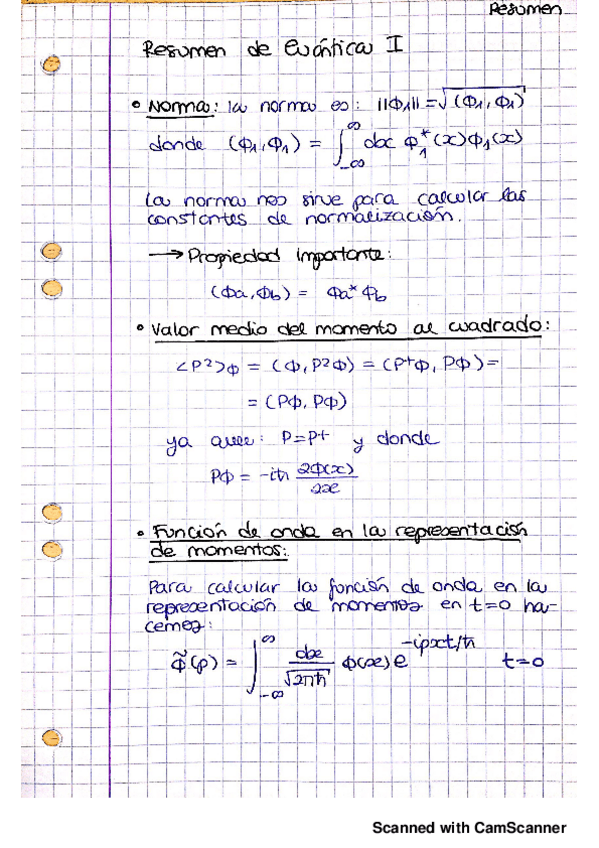 Resumen
Resumen de Cuántica I
• Norma: la norma es: ||Φ₁|| = √(Φ₁, Φ₁)
donde (Φ₁, Φ₁) = ∫_{-∞}^{∞} dx Φ₁*(x) Φ₁(x)
La norma nos sirve para calcular las
constantes de normalización.
→ Propiedad importante:
(Φa, Φb) = Φa* Φb
• Valor medio del momento al cuadrado:
<P²>Φ = (Φ, P²Φ) = (P†Φ, PΦ) =
= (PΦ, PΦ)
ya que: P=P† y donde
PΦ = -iħ ∂Φ(x)/∂x
• Función de onda en la representación
de momentos:
Para calcular la función de onda en la
representación de momentos en t=0 ha-
cemos:
Φ̃(p) = ∫_{-∞}^{∞} dx/√2πħ Φ(x) e^{-ipxt/ħ} t=0
Scanned with CamScanner